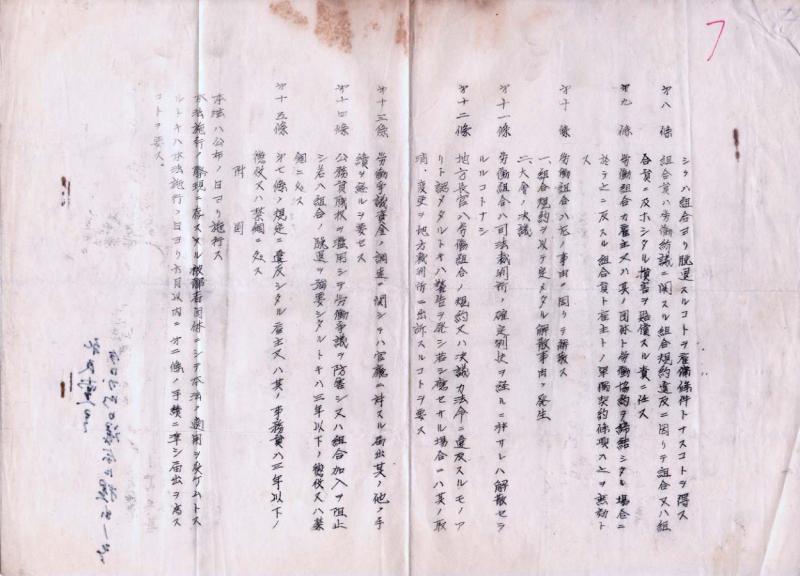 シクハ組合ヨリ脱退スルコトヲ雇傭條件トナスコトヲ得ス
第八條 組合員ハ労働紛議ニ関スル組合規約違反ニ因リテ組合又ハ組
合員ニ及ホシタル損害ヲ賠償スル責ニ任ス
第九條 労働組合カ雇主又ハ其ノ団体ト労働協約ヲ締結シタル場合ニ
於テ之ニ反スル組合員ト雇主トノ単独契約條項ハ之ヲ無効ト
ス
第十條 労働組合ハ左ノ事由ニ因リテ解散ス
一、組合規約ヲ以テ定メタル解散事由ノ発生
二、大會ノ決議
第十一條 労働組合ハ司法裁判所ノ確定判決ヲ経ルニ非サレハ解散セラ
ルルコトナシ
第十二條 地方長官ハ労働組合ノ規約又ハ決議カ法令ニ違反スルモノア
リト認メタルトキハ警告ヲ発シ若シ應セサル場合ニハ其ノ取
消、変更ヲ地方裁判所ニ出訴スルコトヲ要ス
第十三條 労働争議資金ノ調達ニ関シテハ官廳ニ対スル届出其ノ他ノ手
續ヲ経ルヲ要セス
第十四條 公務員職権ヲ濫用シテ労働争議ヲ防害シ又ハ組合加入ヲ阻止
シ若ハ組合ノ脱退ヲ強要シタルトキハ三年以下ノ懲役又ハ禁
錮ニ処ス
第十五條 第七條ノ規定ニ違反シタル雇主又ハ其ノ事務員ハ三年以下ノ
懲役又ハ禁錮ニ処ス
附 則
本法ハ公布ノ日ヨリ施行ス
本法施行ノ際現ニ存スル被傭者団体ニシテ本法ノ適用ヲ受ケムトス
ルトキハ本法施行ノ日ヨリ六月以内ニ第二條ノ手續ニ準シ届出ヲ為ス
コトヲ要ス。